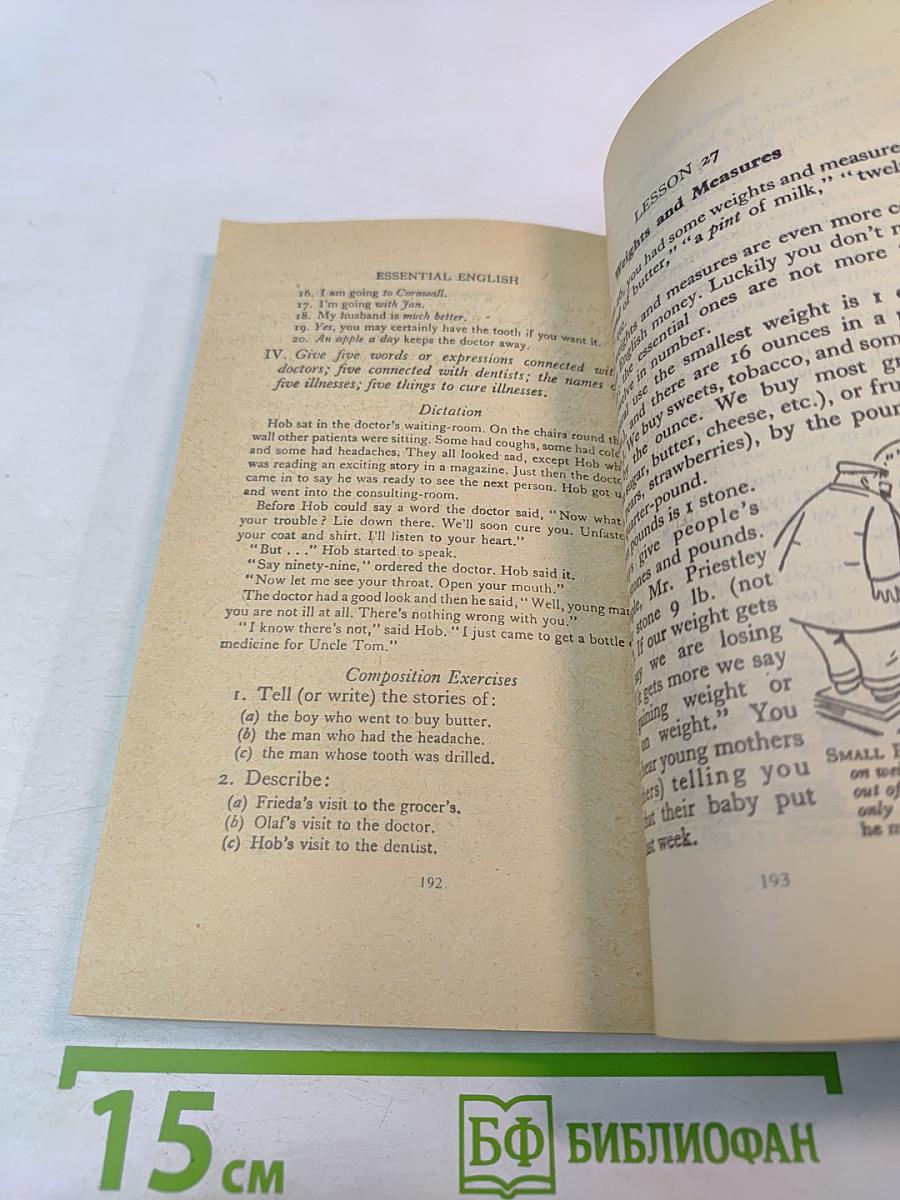 ESSENTIAL ENGLISH
16. I am going to Cornwall.
17. I'm going with Jan.
18. My husband is much better.
19. Yes, you may certainly have the tooth if you want it.
20. An apple a day keeps the doctor away.
IV. Give five words or expressions connected wit
doctors; five connected with dentists; the names
five illnesses; five things to cure illnesses.
Dictation
Hob sat in the doctor's waiting-room. On the chairs round th
wall other patients were sitting. Some had coughs, some had col
and some had headaches. They all looked sad, except Hob wh
was reading an exciting story in a magazine. Just then the docto
came in to say he was ready to see the next person. Hob got u
and went into the consulting-room.
Before Hob could say a word the doctor said, "Now what
your trouble? Lie down there. We'll soon cure you. Unfaste
your coat and shirt. I'll listen to your heart."
"But . . ." Hob started to speak.
"Say ninety-nine," ordered the doctor. Hob said it.
"Now let me see your throat. Open your mouth."
The doctor had a good look and then he said, "Well, young man
you are not ill at all. There's nothing wrong with you."
"I know there's not," said Hob. "I just came to get a bottle
medicine for Uncle Tom."
Composition Exercises
1. Tell (or write) the stories of:
(a) the boy who went to buy butter.
(b) the man who had the headache.
(c) the man whose tooth was drilled.
2. Describe:
(a) Frieda's visit to the grocer's.
(b) Olaf's visit to the doctor.
(c) Hob's visit to the dentist.
192
LESSON 27
Weights and Measures
you had some weights and measure
of butter," "a pint of milk," "twel
and measures are even more c
English money. Luckily you don't n
the essential ones are not more
in number.
use the smallest weight is 1
and there are 16 ounces in a
We buy sweets, tobacco, and som
the ounce. We buy most gr
sugar, butter, cheese, etc.), or fru
strawberries), by the pour
quarter-pound.
pounds is 1 stone.
give people's
stones and pounds.
Mr. Priestley
stone 9 lb. (not
If our weight gets
say we are losing
gets more we say
gaining weight or
on weight." You
hear young mothers
telling you
that their baby put
week.
SMALL
on wei
out of
only
he m
193
15 см
БФ БИБЛИОФАН